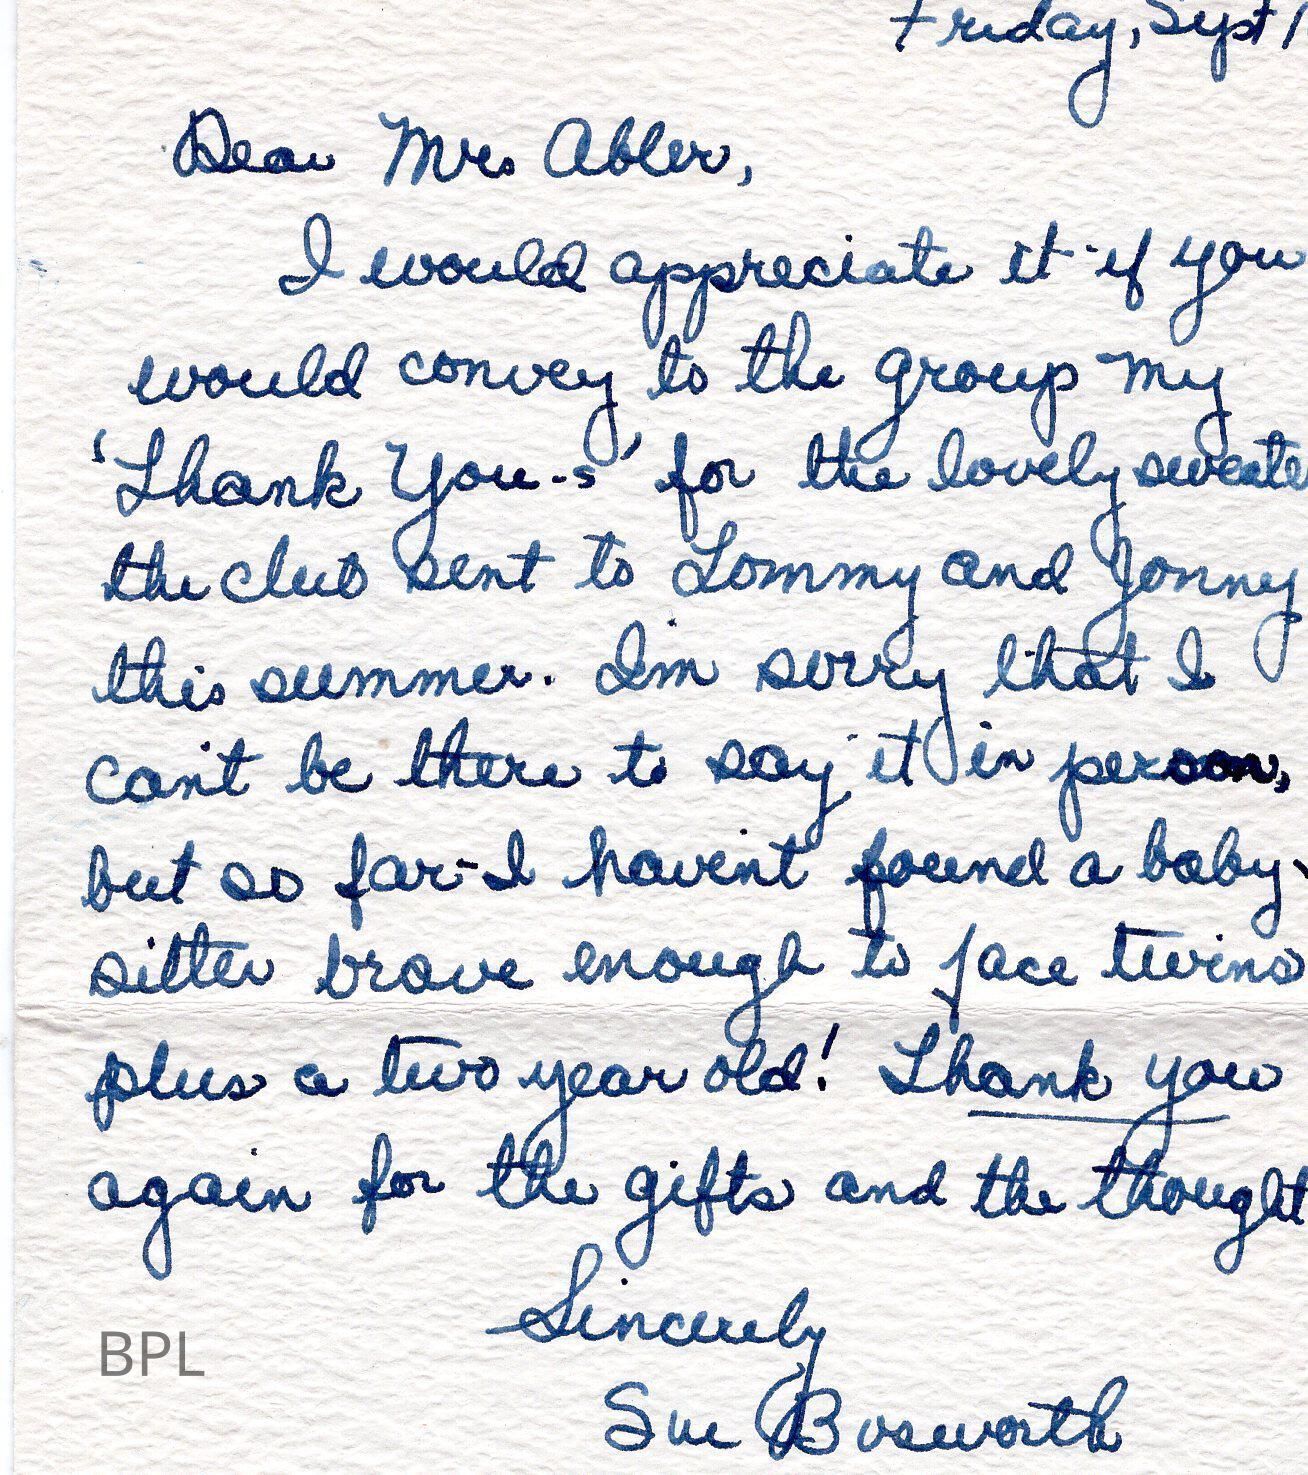 Friday, Sept 1
Dear Mrs. Abler,
I would appreciate it if you
would convey to the group my
'Thank You-s' for the lovely sweate
the club sent to Tommy and Jonny
this summer. I'm sorry that I
can't be there to say it in person,
but so far-I haven't found a baby-
sitter brave enough to face twins
plus a two year old! Thank you
again for the gifts and the thought
Sincerely
Sue Bosworth
BPL